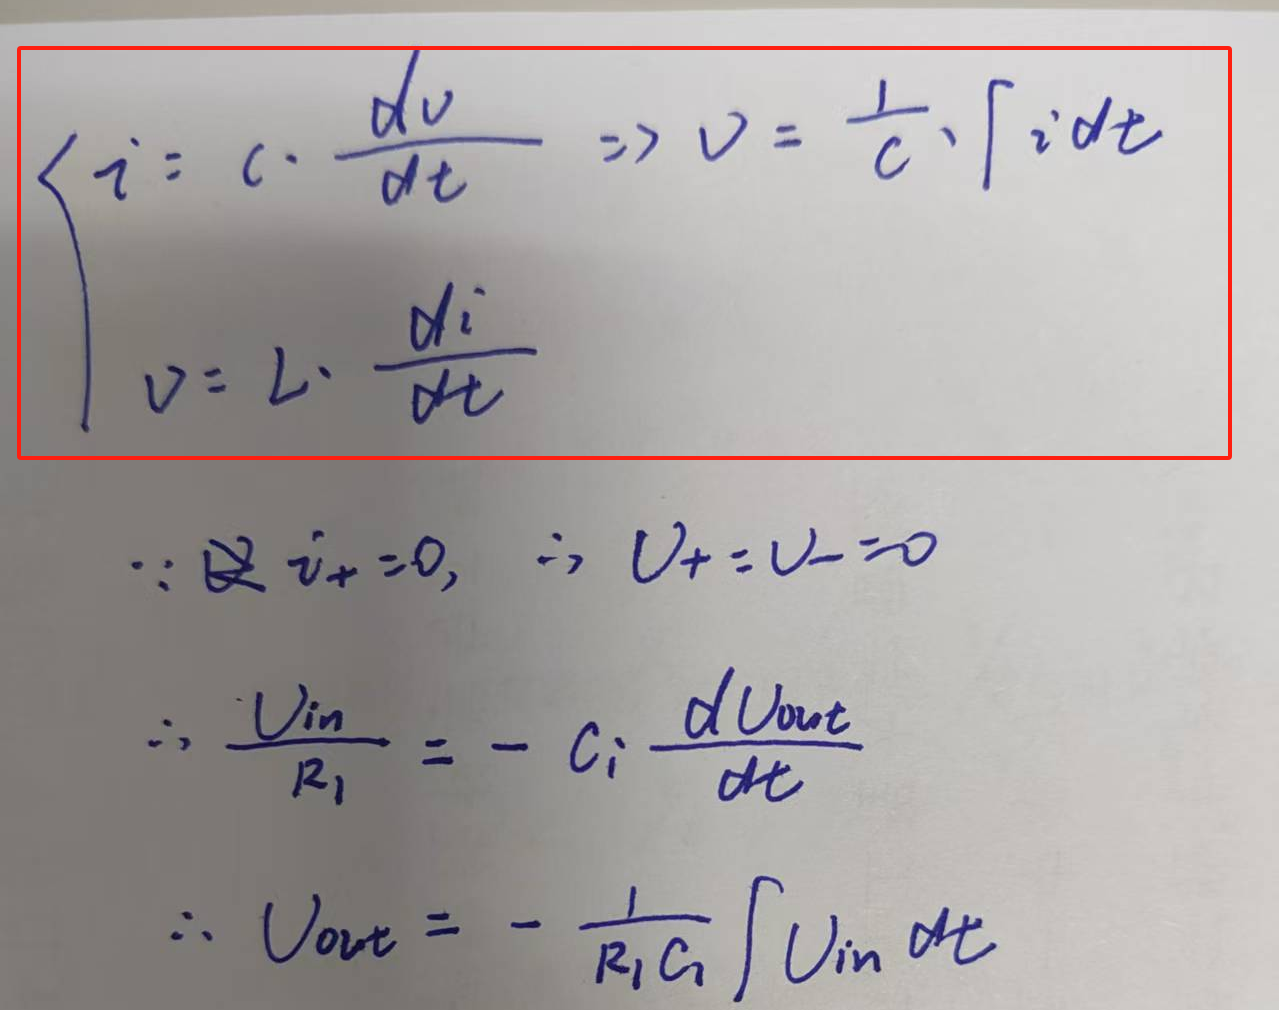 { i = C · dv/dt => v = 1/C · ∫ i dt
v = L · di/dt
∵ i+ = 0, ∴ U+ = U- = 0
∴ Uin/R1 = - C1 dUout/dt
∴ Uout = - 1/(R1C1) ∫ Uin dt